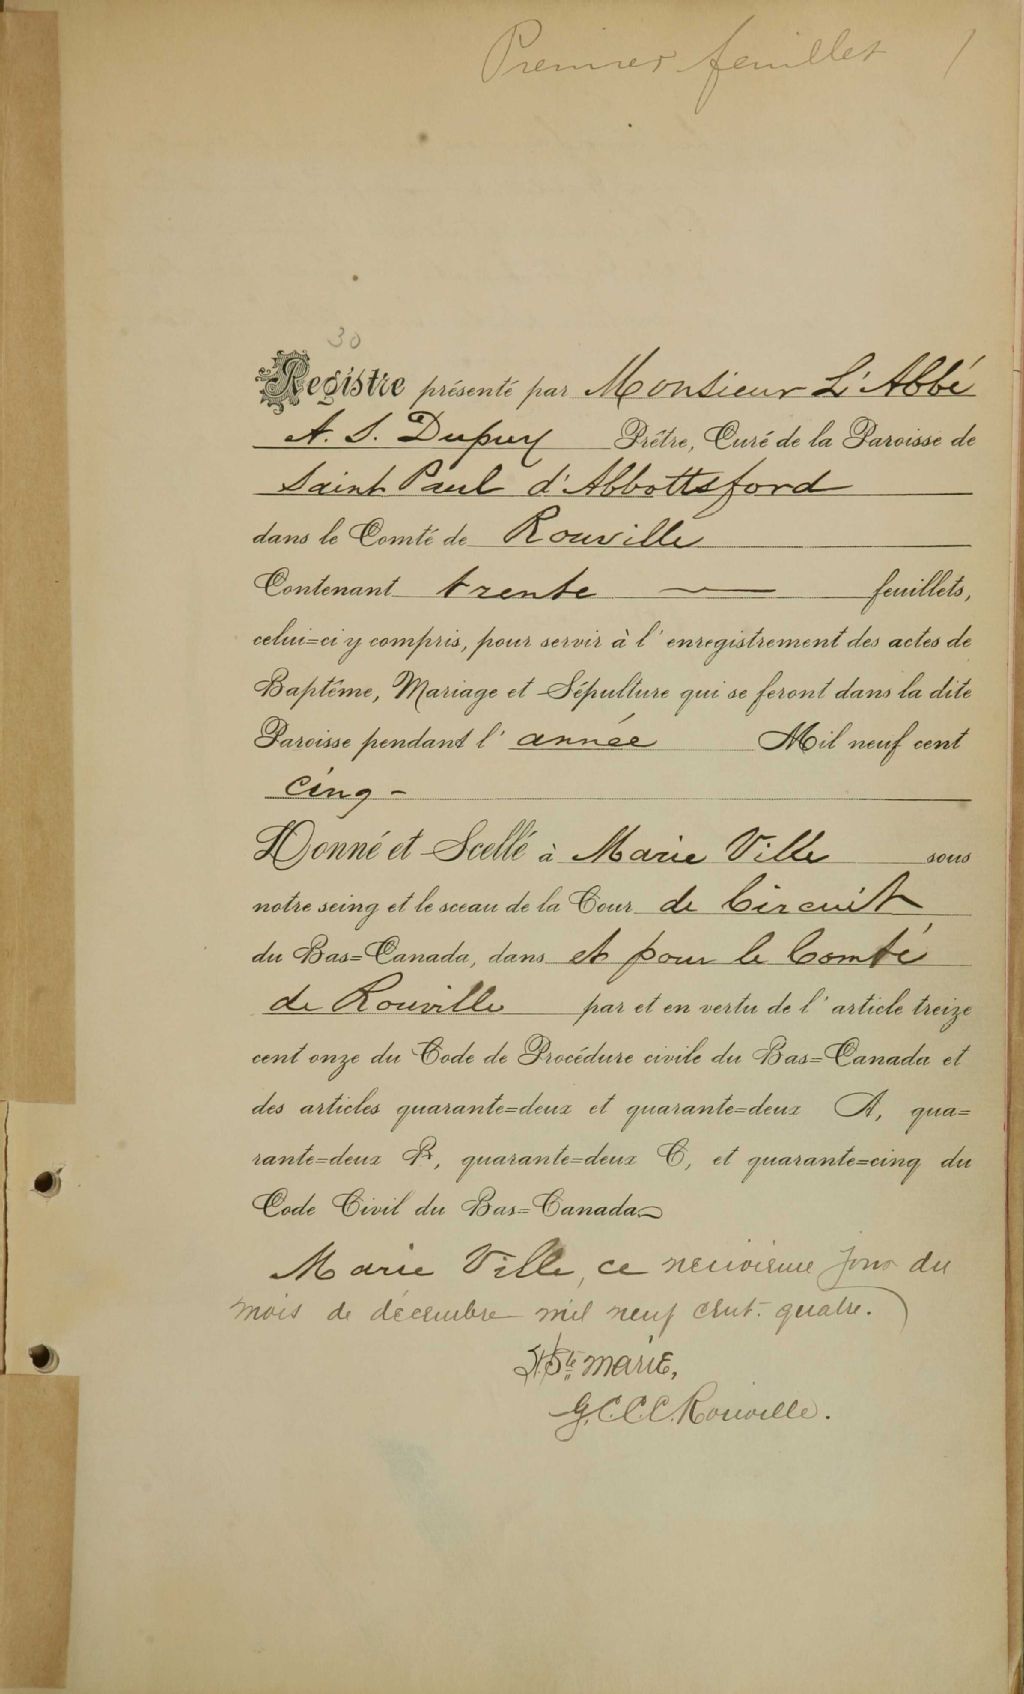 Premier feuillet 1
30
Registre présenté par Monsieur L'Abbé
A. S. Dupuy Prêtre, Curé de la Paroisse de
Saint Paul d'Abbottsford
dans le Comté de Rouville
Contenant trente feuillets,
celui=ci y compris, pour servir à l'enregistrement des actes de
Baptême, Mariage et Sépulture qui se feront dans la dite
Paroisse pendant l'année Mil neuf cent
cinq -
Donné et Scellé à Marie Ville sous
notre seing et le sceau de la Cour de Circuit
du Bas=Canada, dans et pour le Comté
de Rouville par et en vertu de l'article treize
cent onze du Code de Procédure civile du Bas=Canada et
des articles quarante=deux et quarante=deux A, qua=
rante=deux B, quarante=deux C, et quarante=cinq du
Code Civil du Bas=Canada
Marie Ville, ce neuvième jour du
mois de décembre mil neuf cent quatre.
Ste marie,
G.C.C.C. Rouville.